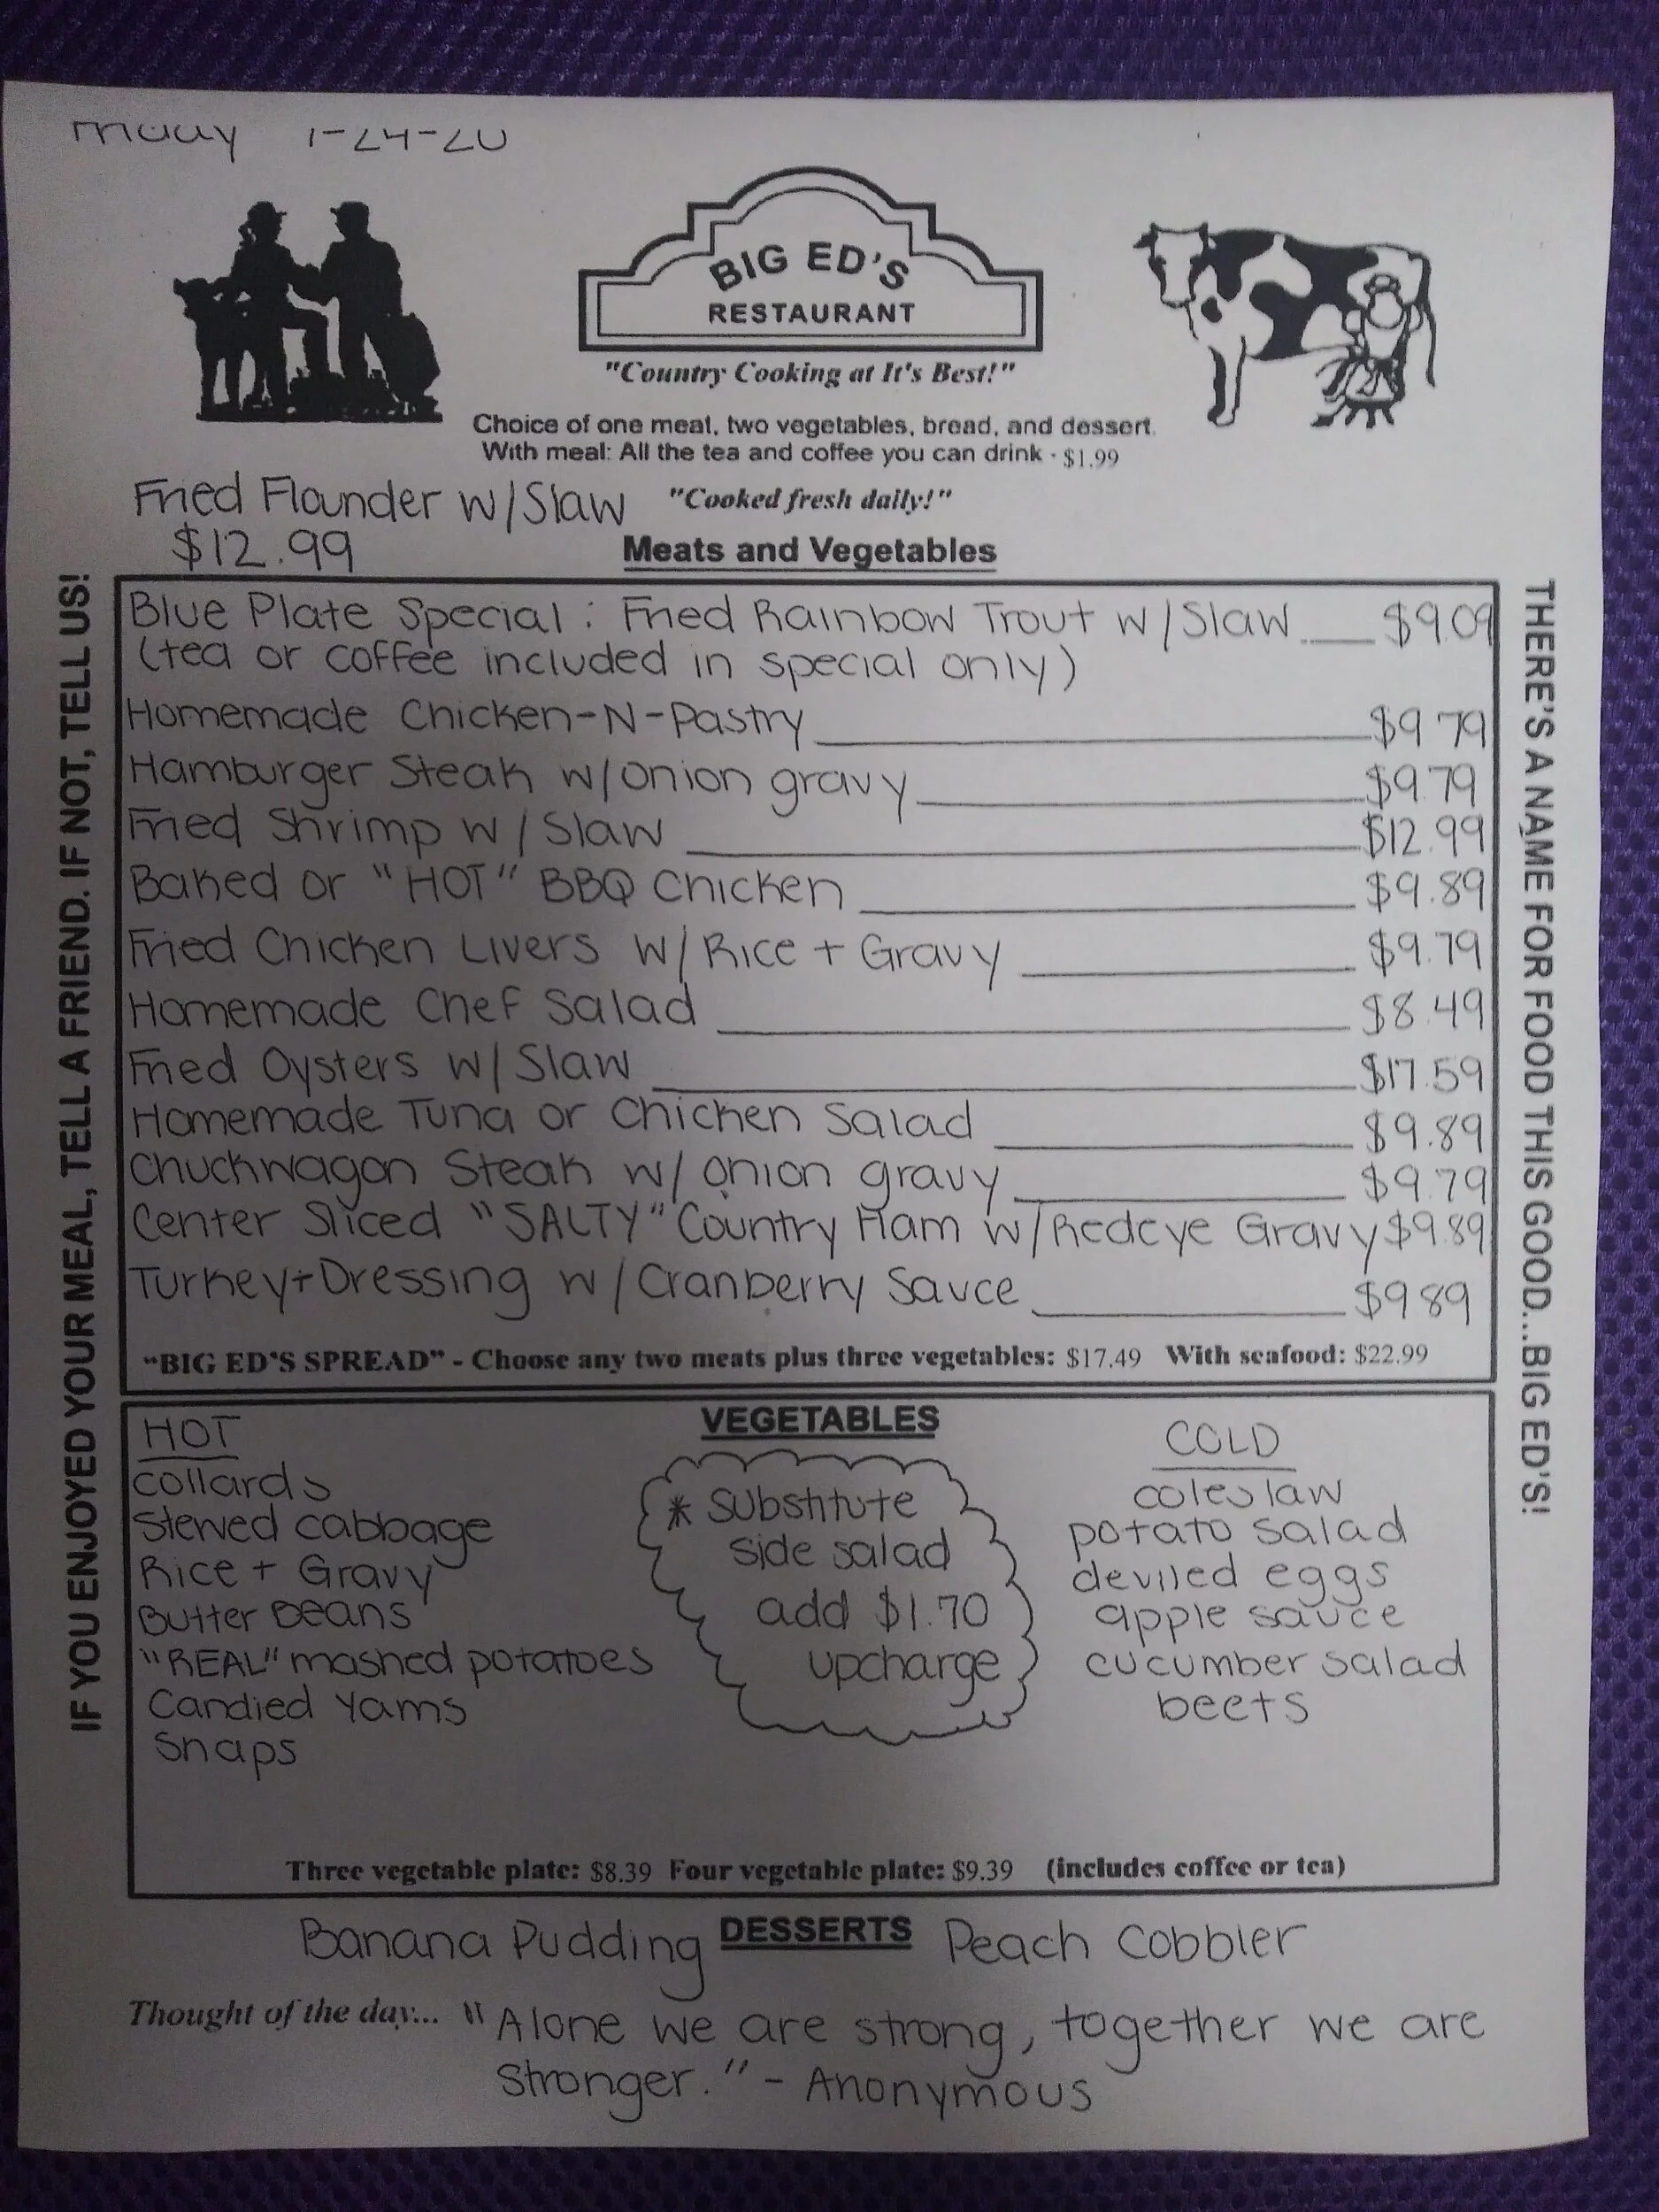 Friday 1-24-20
BIG ED'S
RESTAURANT
"Country Cooking at It's Best!"
Choice of one meat, two vegetables, bread, and dessert.
With meal: All the tea and coffee you can drink - $1.99
Fried Flounder w/Slaw "Cooked fresh daily!"
$12.99
Meats and Vegetables
Blue Plate Special: Fried Rainbow Trout w/Slaw $9.09
(tea or coffee included in special only)
Homemade Chicken-N-Pastry $9.79
Hamburger Steak w/onion gravy $9.79
Fried Shrimp w/Slaw $12.99
Baked or "HOT" BBQ Chicken $9.89
Fried Chicken Livers w/Rice + Gravy $9.79
Homemade Chef Salad $8.49
Fried Oysters w/Slaw $17.59
Homemade Tuna or Chicken Salad $9.89
Chuckwagon Steak w/onion gravy $9.79
Center Sliced "SALTY" Country Ham w/Redeye Gravy $9.89
Turkey+Dressing w/Cranberry Sauce $9.89
"BIG ED'S SPREAD" - Choose any two meats plus three vegetables: $17.49 With seafood: $22.99
VEGETABLES
HOT
collards
Stewed cabbage
Rice + Gravy
Butter Beans
"REAL" mashed potatoes
Candied Yams
Snaps
* Substitute
side salad
add $1.70
upcharge
COLD
coleslaw
potato salad
deviled eggs
apple sauce
cucumber salad
beets
Three vegetable plate: $8.39 Four vegetable plate: $9.39 (includes coffee or tea)
Banana Pudding DESSERTS Peach Cobbler
Thought of the day... "Alone we are strong, together we are
stronger." - Anonymous
IF YOU ENJOYED YOUR MEAL, TELL A FRIEND. IF NOT, TELL US!
THERE'S A NAME FOR FOOD THIS GOOD...BIG ED'S!